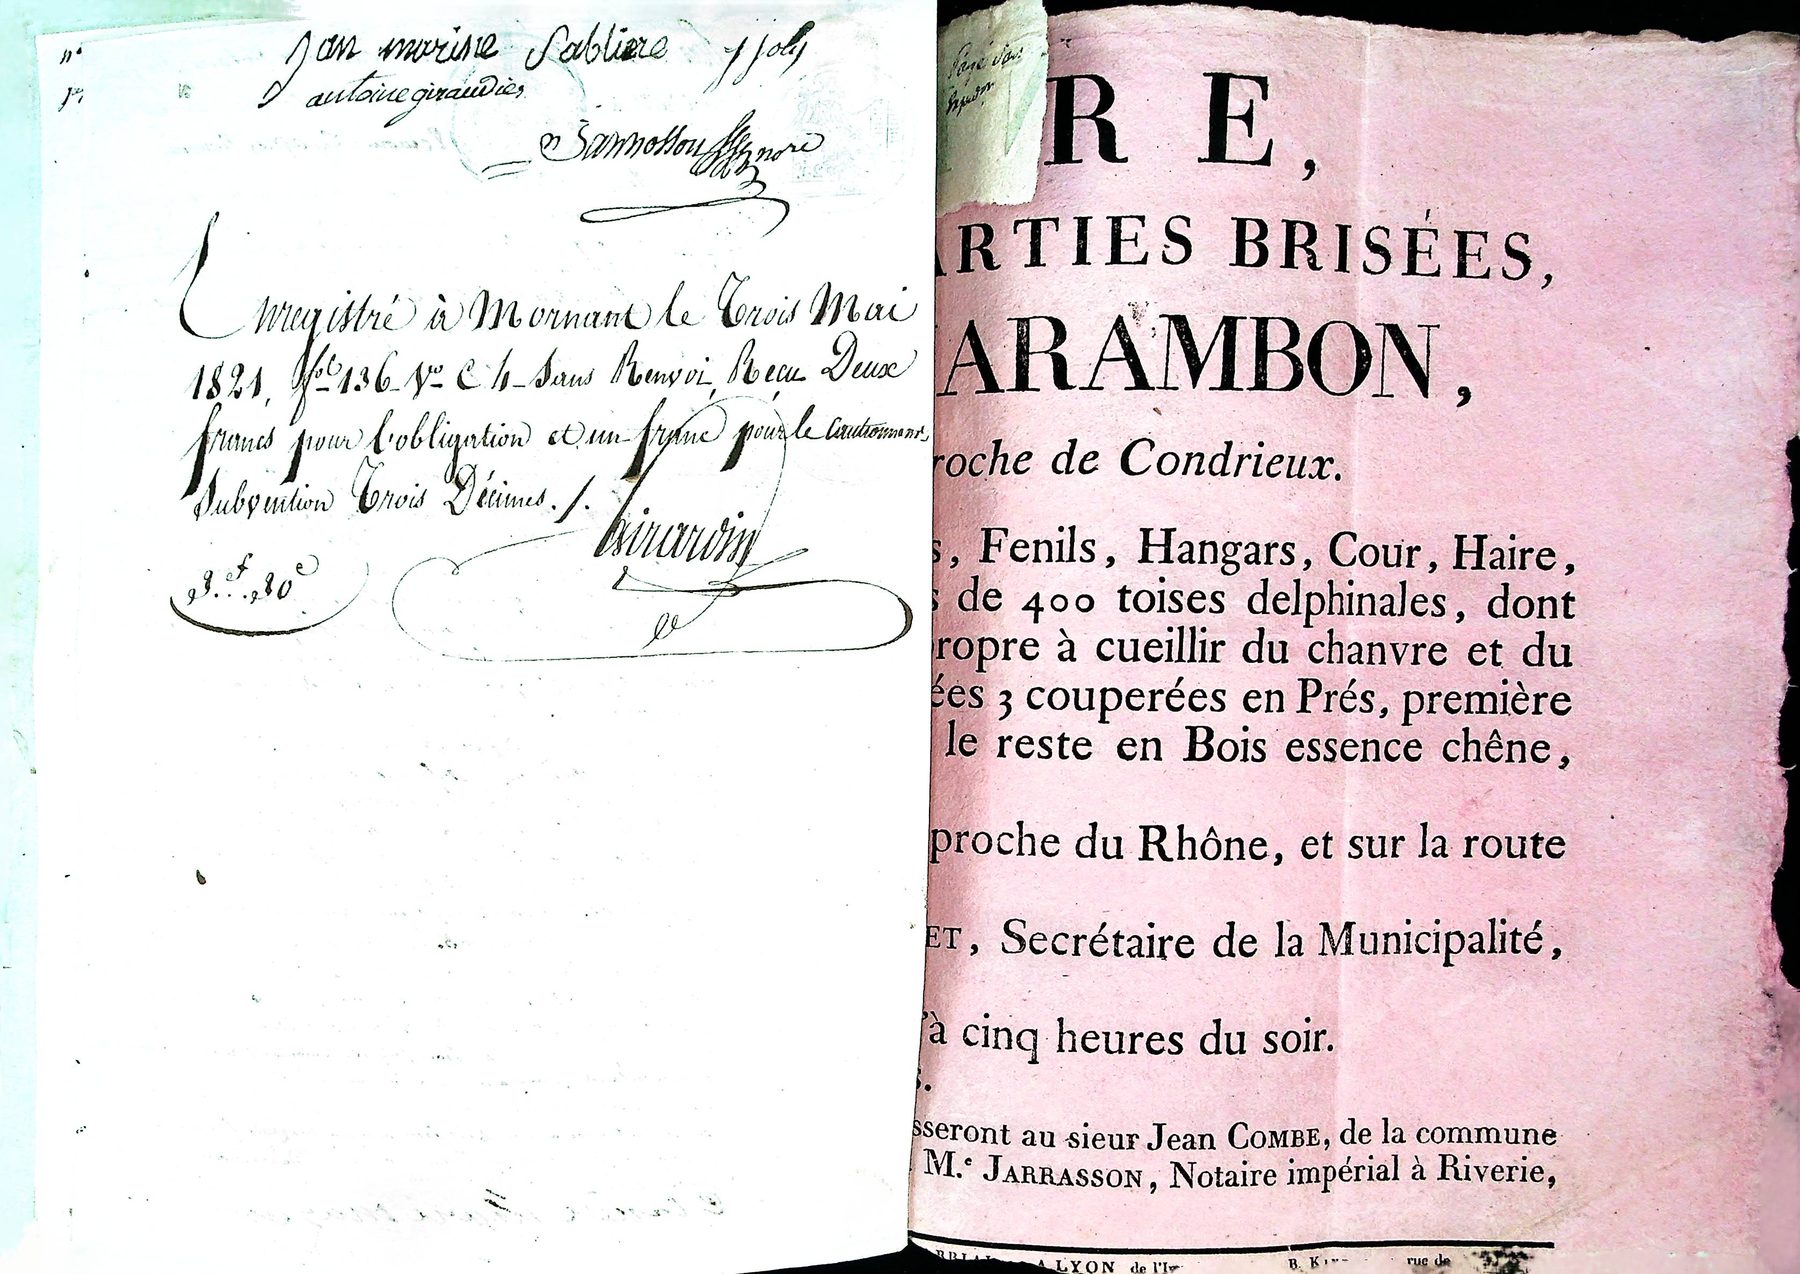 Jan marine Sabliere j joly
antoine giraudier
Enregistré à Mornant le Trois Mai
1821, fol 136 Vo C 4 Sans Renvoi, Reçu Deux
francs pour l'obligation et un franc pour le cautionnemt
Subvention Trois Décimes./.
Girardin
3.f.30c
Payé
RE,
ARTIES BRISÉES,
ARAMBON,
roche de Condrieux.
s, Fenils, Hangars, Cour, Haire,
s de 400 toises delphinales, dont
ropre à cueillir du chanvre et du
ées 3 couperées en Prés, première
le reste en Bois essence chêne,
proche du Rhône, et sur la route
ET, Secrétaire de la Municipalité,
'à cinq heures du soir.
s.
sseront au sieur Jean COMBE, de la commune
M.e JARRASSON, Notaire impérial à Riverie,
A LYON de l'I
B. K rue de